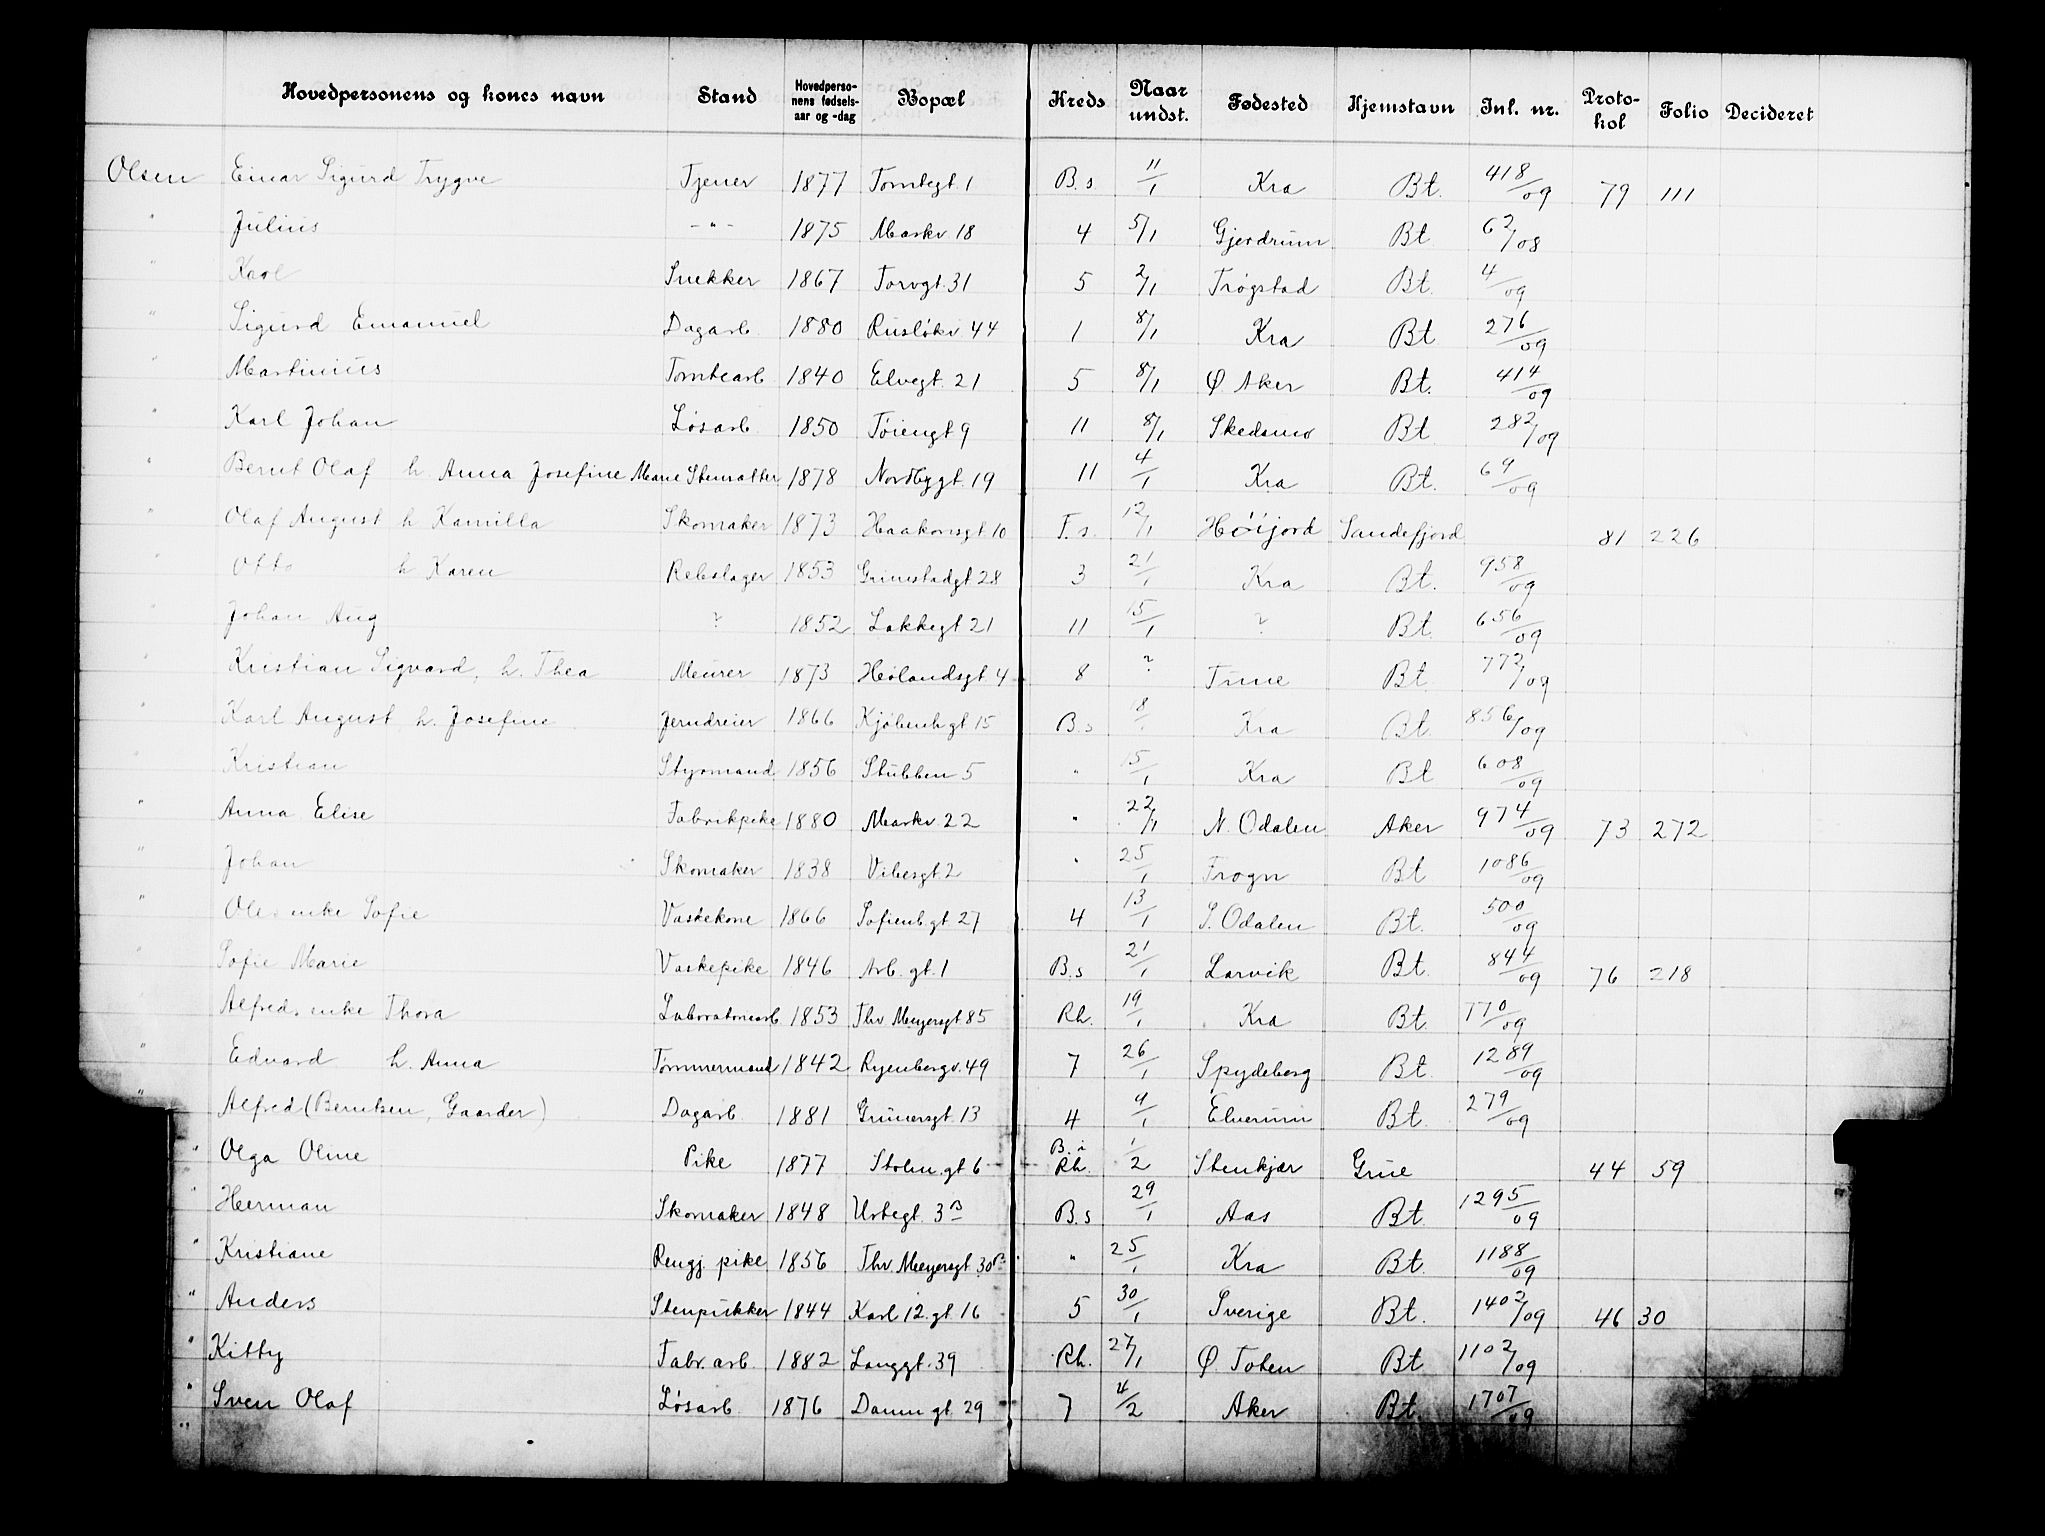 Hovedpersonens og kones navn | Stand | Hovedpersonens fødselsaar og -dag | Bopæl | Kreds | Naar undst. | Fødested | Hjemstavn | Inl. nr. | Protokol | Folio | Decideret
Olsen Einar Sigurd Trygve | Tjener | 1877 | Tomtegt. 1 | B.s. | 11/1 | Kra | Bt. | 418/09 | 79 | 111
" Julius | -"- | 1875 | Markv 18 | 4 | 5/1 | Gjerdrum | Bt | 62/08
" Karl | Snekker | 1867 | Torvgt. 31 | 5 | 2/1 | Trøgstad | Bt. | 4/09
" Sigurd Emanuel | Dagarb. | 1880 | Rusløkv 44 | 1 | 8/1 | Kra | Bt | 276/09
" Martinius | Tomtearb | 1840 | Elvegt. 21 | 5 | 8/1 | Ø. Aker | Bt. | 414/09
" Karl Johan | Løsarb. | 1850 | Tøiengt 9 | 11 | 8/1 | Skedsmo | Bt | 282/09
" Bernt Olaf h. Anna Josefine Marie | Stenratter | 1878 | Nordbygt. 19 | 11 | 4/1 | Kra | Bt. | 69/09
" Olaf August h Kamilla | Skomaker | 1873 | Haakonsgt 10 | F.s. | 12/1 | Høijord | Sandefjord | 81 | 226
" Otto h Karen | Rebslager | 1853 | Grimstadgt 28 | 3 | 21/1 | Kra | Bt. | 958/09
" Johan Aug | ? | 1852 | Lakkegt 21 | 11 | 15/1 | ? | Bt. | 656/09
" Kristian Sigvard, h. Thea | Meurer | 1873 | Hølandsgt 4 | 8 | ? | Tune | Bt | 772/09
" Karl August h. Josefine | Jerndreier | 1866 | Kjøbenh gt 15 | B.s | 18/1 | Kra | Bt. | 856/09
Kristian | Styrmand | 1856 | Stubben 5 | " | 15/1 | Kra | Bt | 608/09
" Anna Elise | Fabrikpike | 1880 | Markv 22 | " | 22/1 | N. Odalen | Aker | 974/09 | 73 | 272
" Johan | Skomaker | 1838 | Vibesgt. 2 | " | 25/1 | Frogn | Bt | 1086/09
" Oles enke Sofie | Vaskekone | 1866 | Sofienb. gt 27 | 4 | 13/1 | S. Odalen | Bt. | 500/09
" Sofie Marie | Vaskepike | 1846 | Arb. gt. 1 | B.s | 21/1 | Larvik | Bt. | 844/09 | 76 | 218
" Alfreds enke Thora | Laboratoriearb | 1853 | Thv Meyersgt 85 | Rh. | 19/1 | Kra | Bt. | 770/09
" Edvard h. Anna | Tømmermand | 1842 | Ryenbergv. 49 | 7 | 26/1 | Spydeberg | Bt. | 1289/09
" Alfred (Berntsen, Gaarder) | Dagarb. | 1881 | Grünersgt. 13 | 4 | 9/1 | Elverum | Bt. | 279/09
" Olga Oline | Pike | 1877 | Stolm. gt 6 | B.i Rh. | 1/2 | Stenkjær | Grue | 44 | 59
" Herman | Skomaker | 1848 | Urtegt. 3B | B.s | 29/1 | Aas | Bt. | 1295/09
" Kristiane | Rengj. pike | 1856 | Thv. Meyersgt 30B | " | 25/1 | Kra | Bt. | 1188/09
" Anders | Stenpukker | 1844 | Karl 12. gt. 16 | 5 | 30/1 | Sverige | Bt. | 1402/09 | 46 | 30
" Kitty | Fabr. arb. | 1882 | Langgt. 39 | Rh. | 27/1 | Ø. Toten | Bt | 1102/09
" Sven Olaf | Løsarb. | 1876 | Damm gt. 29 | 7 | 4/2 | Aker | Bt. | 1707/09
"